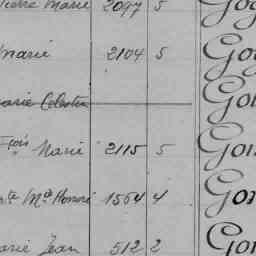 Pierre Marie 2097 5 Gog
Marie 2104 5 Gog
Marie Celestin Goi
Fçois Marie 2115 5 Goi
Mie Honoré 1564 4 Goi
Marie Jean 512 2 Goi